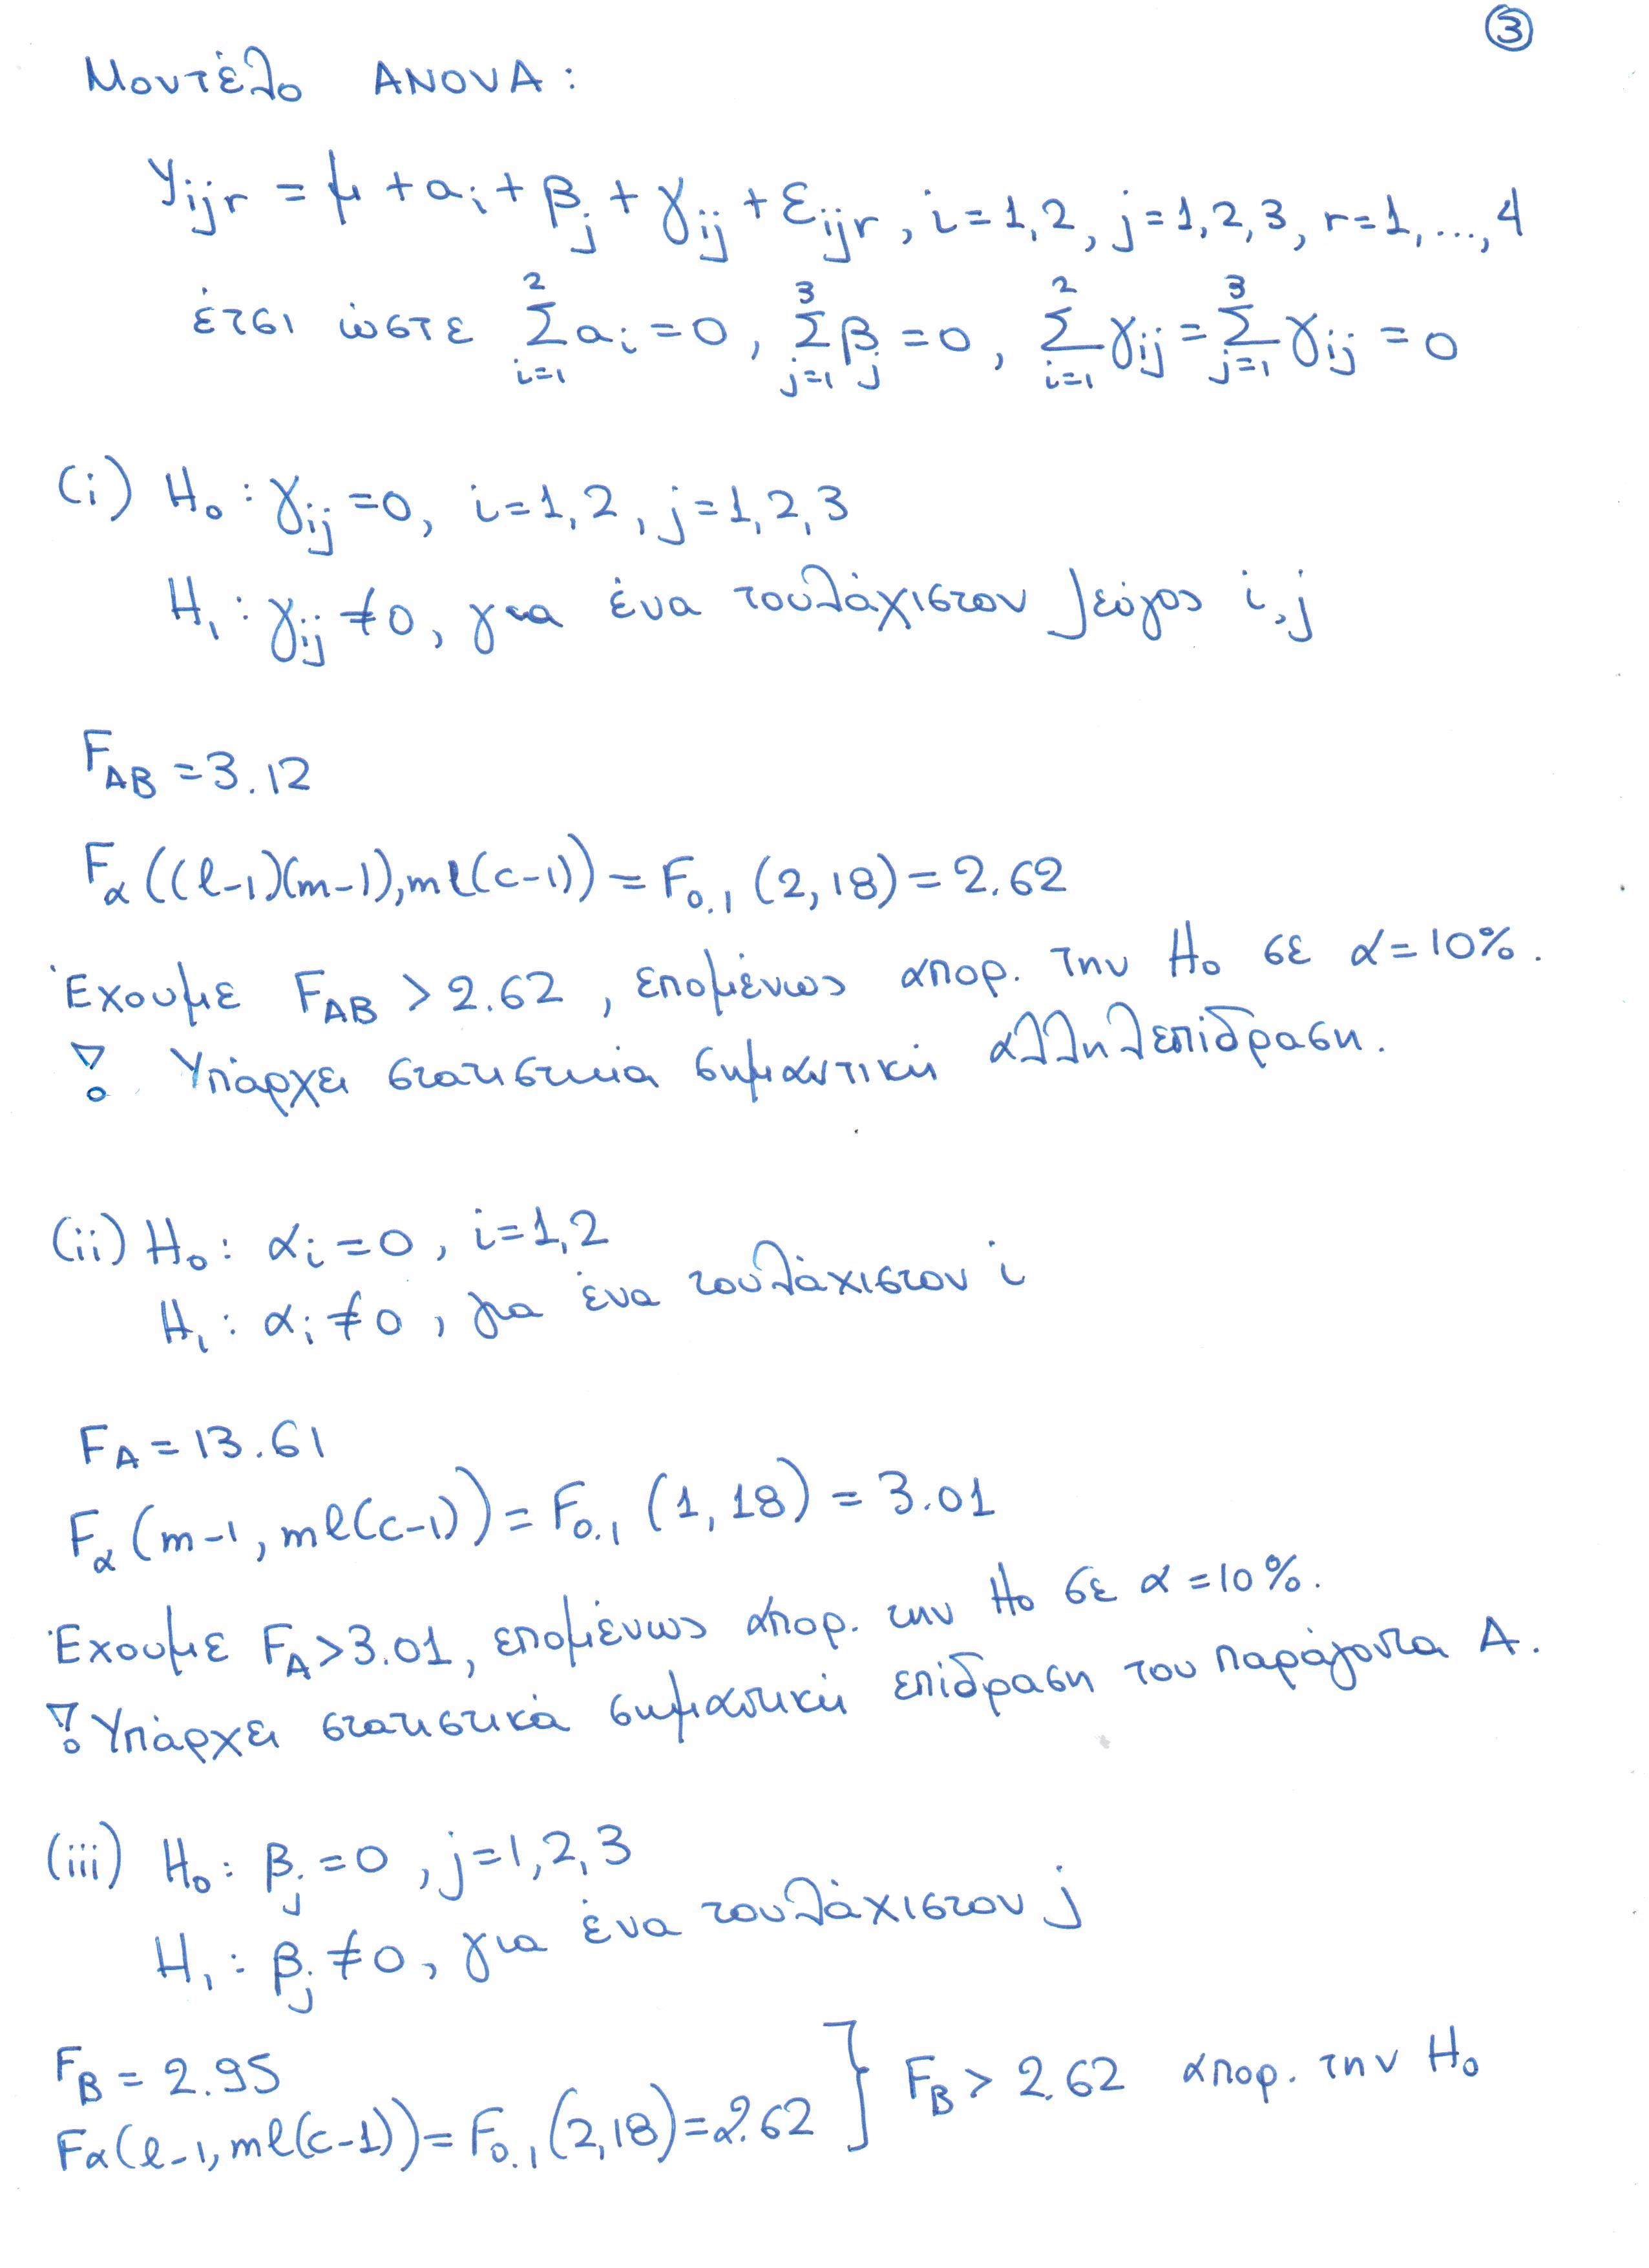 ③
Μοντέλο ANOVA:
yijr = μ + αi + βj + γij + εijr, i=1,2, j=1,2,3, r=1,...,4
έτσι ώστε Σ_{i=1}^{2} αi = 0, Σ_{j=1}^{3} βj = 0, Σ_{i=1}^{2} γij = Σ_{j=1}^{3} γij = 0
(i) H0: γij = 0, i=1,2, j=1,2,3
H1: γij ≠ 0, για ένα τουλάχιστον ζεύγος i,j
FAB = 3.12
Fα((l-1)(m-1), ml(c-1)) = F0.1(2,18) = 2.62
Έχουμε FAB > 2.62, επομένως απορ. την H0 σε α=10%.
∇ο Υπάρχει στατιστικά σημαντική αλληλεπίδραση.
(ii) H0: αi = 0, i=1,2
H1: αi ≠ 0, για ένα τουλάχιστον i
FA = 13.61
Fα(m-1, ml(c-1)) = F0.1(1,18) = 3.01
Έχουμε FA > 3.01, επομένως απορ. την H0 σε α=10%.
∇ο Υπάρχει στατιστικά σημαντική επίδραση του παράγοντα A.
(iii) H0: βj = 0, j=1,2,3
H1: βj ≠ 0, για ένα τουλάχιστον j
FB = 2.95
Fα(l-1, ml(c-1)) = F0.1(2,18) = 2.62 ] FB > 2.62 απορ. την H0